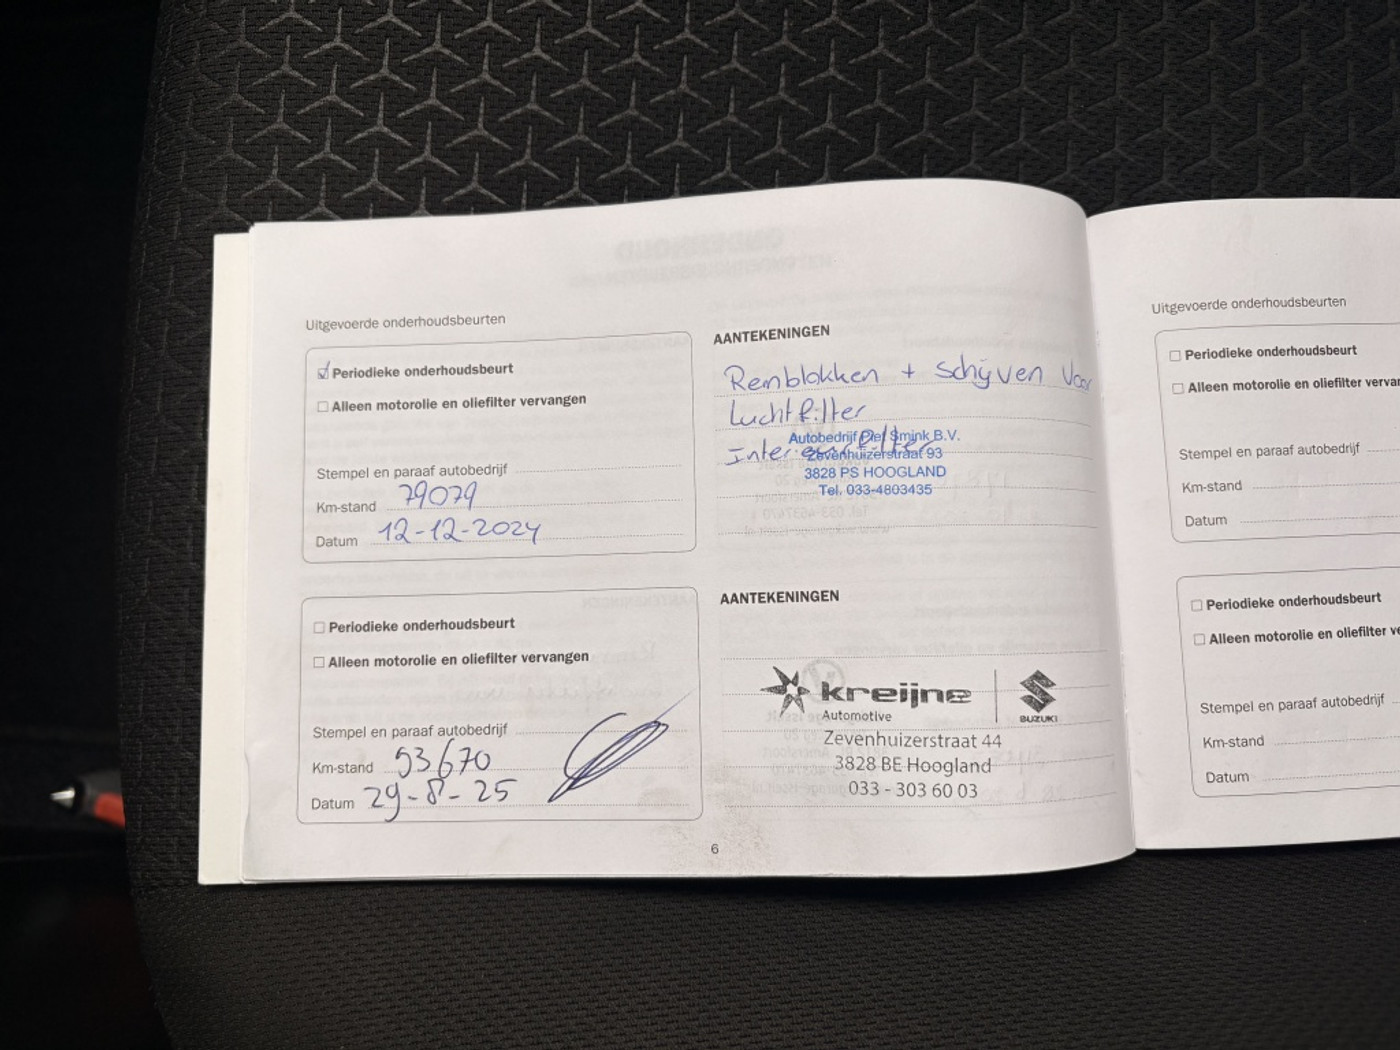 Uitgevoerde onderhoudsbeurten
Periodieke onderhoudsbeurt
Alleen motorolie en oliefilter vervangen
Stempel en paraaf autobedrijf
Km-stand 79079
Datum 12-12-2024
AANTEKENINGEN
Remblokken + schijven Voor
Luchtfilter
Interieurfilter
Autobedrijf Piet Smink B.V.
Zevenhuizerstraat 93
3828 PS HOOGLAND
Tel. 033-4803435
Periodieke onderhoudsbeurt
Alleen motorolie en oliefilter vervangen
Stempel en paraaf autobedrijf
Km-stand 93670
Datum 29-8-25
AANTEKENINGEN
kreijne
Automotive
SUZUKI
Zevenhuizerstraat 44
3828 BE Hoogland
033 - 303 60 03
6
Uitgevoerde onderhoudsbeurten
Periodieke onderhoudsbeurt
Alleen motorolie en oliefilter
Stempel en paraaf autobedrijf
Km-stand
Datum
Periodieke onderhoudsbeurt
Alleen motorolie en oliefilter
Stempel en paraaf autobedrijf
Km-stand
Datum